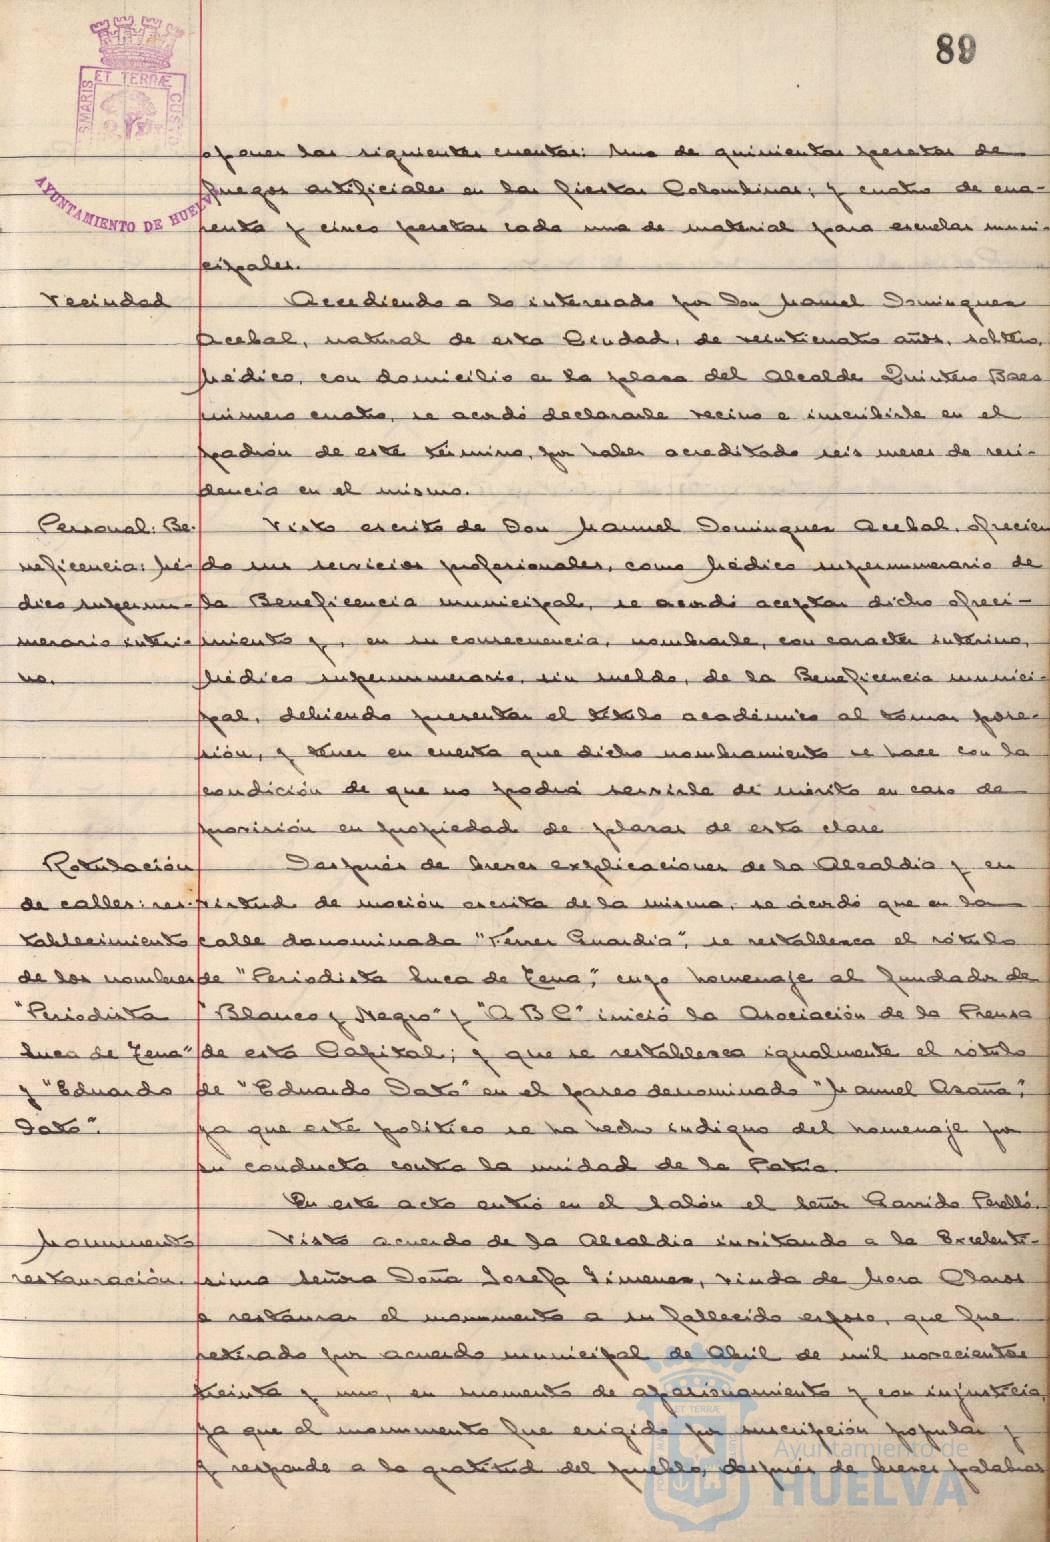 89
S MARIS ET TERRÆ CUSTO
AYUNTAMIENTO DE HUELVA
oponer las siguientes cuentas: Una de quinientas pesetas de
fuegos artificiales en las fiestas Colombinas; y cuatro de cua-
renta y cinco pesetas cada una de material para escuelas muni-
cipales.
Vecindad
Accediendo a lo interesado por Don Manuel Dominguez
Acebal, natural de esta Ciudad, de veinticuatro años, soltero,
Médico, con domicilio en la plaza del Alcalde Quintero Baez
número cuatro, se acordó declararle vecino e inscribirle en el
padrón de este término, por haber acreditado seis meses de resi-
dencia en el mismo.
Personal: Be-
neficencia: Mé-
dico supernu-
merario interi-
no.
Visto escrito de Don Manuel Dominguez Acebal, ofrecien
do sus servicios profesionales, como Médico supernumerario de
la Beneficencia municipal, se acordó aceptar dicho ofreci-
miento y, en su consecuencia, nombrarle, con caracter interino,
Médico supernumerario, sin sueldo, de la Beneficencia munici-
pal, debiendo presentar el título académico al tomar pose-
sión, y tener en cuenta que dicho nombramiento se hace con la
condición de que no podrá servirle de mérito en caso de
provisión en propiedad de plazas de esta clase
Rotulación
de calles: res-
tablecimiento
de los nombres
"Periodista
Luca de Tena"
y "Eduardo
Dato".
Después de breves explicaciones de la Alcaldía y en
virtud de moción escrita de la misma, se acordó que en la
calle danominada "Ferrer Guardia", se restablezca el rótulo
de "Periodista Luca de Tena", cuyo homenaje al fundador de
"Blanco y Negro" y "A B C" inició la Asociación de la Prensa
de esta Capital; y que se restablezca igualmente el rótulo
de "Eduardo Dato" en el paseo denominado "Manuel Azaña",
ya que este político se ha hecho indigno del homenaje por
su conducta contra la unidad de la Patria.
En este acto entró en el Salón el Señor Garrido Perelló.
Monumento
restauración.
Visto acuerdo de la Alcaldía invitando a la Excelentí-
sima Señora Doña Josefa Jimenez, viuda de Mora Claros
a restaurar el monumento a su fallecido esposo, que fue
retirado por acuerdo municipal de Abril de mil novecientos
treinta y uno, en momento de apasionamiento y con injusticia,
ya que el monumento fue erigido por suscripción popular y
y responde a la gratitud del pueblo, después de breves palabras
Ayuntamiento de
HUELVA